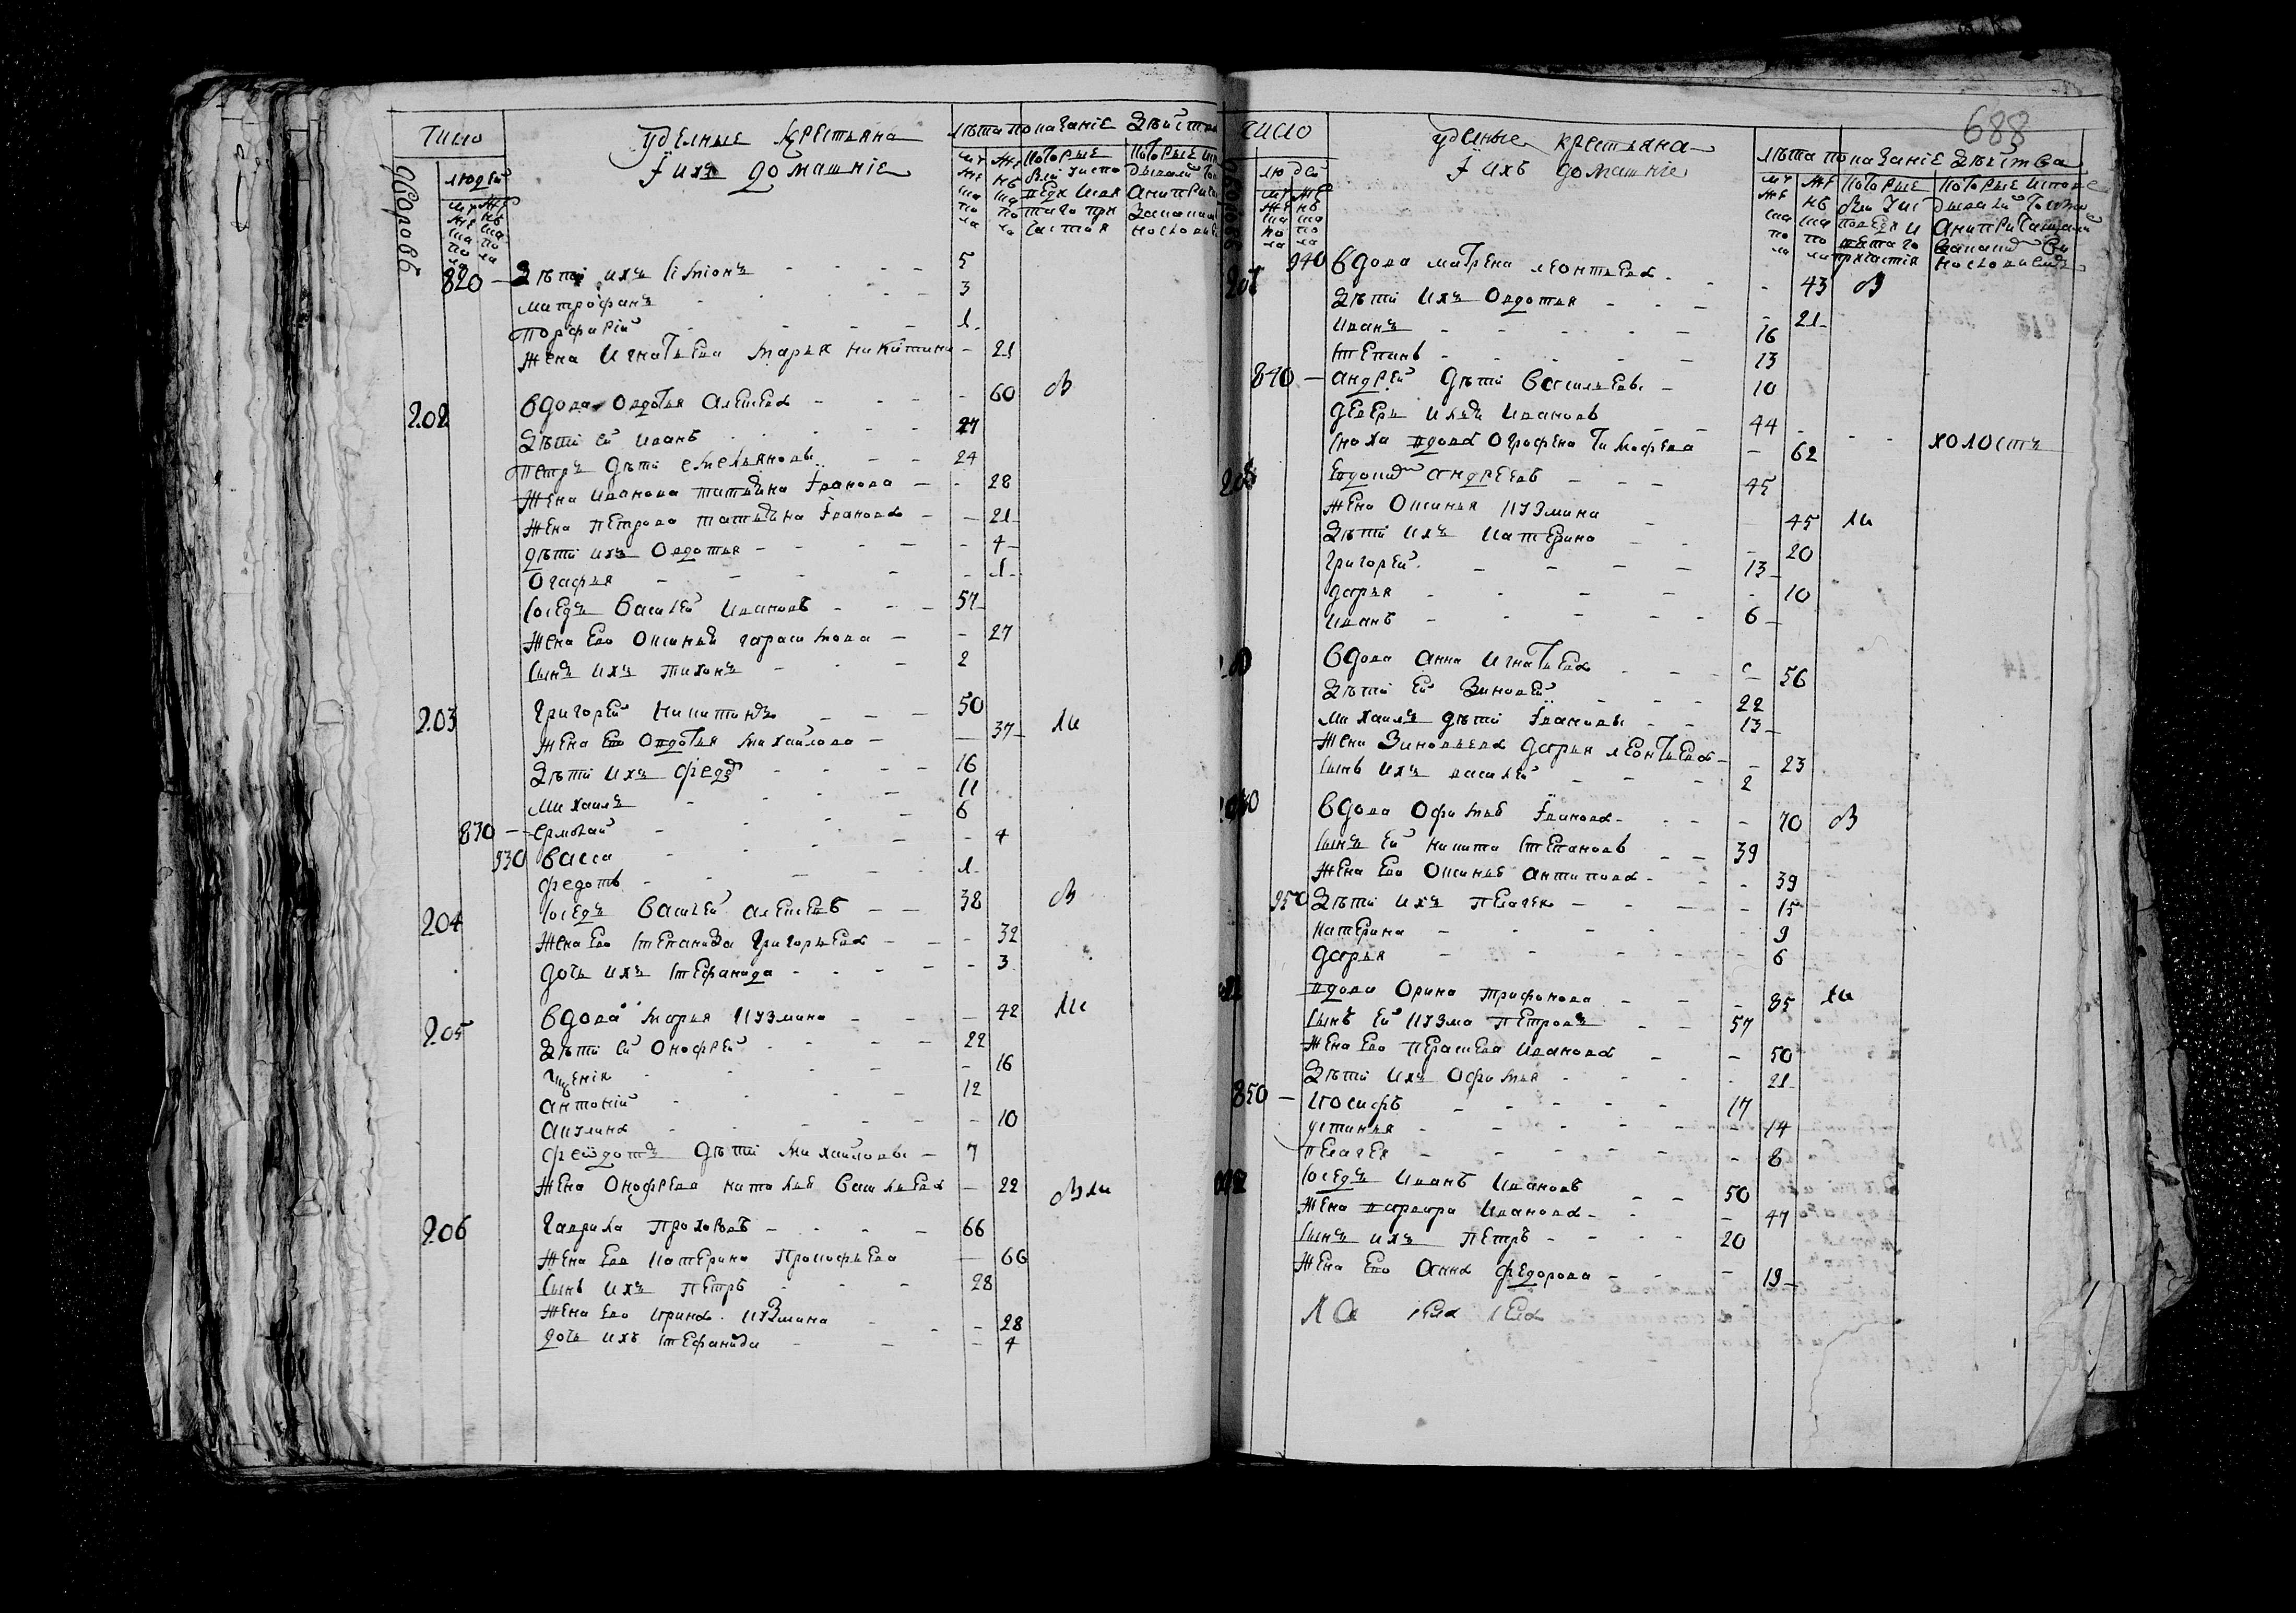 число
удельные крестьяна
лѣта показаніе дѣйства
Ї ихъ домашніе
дворовъ
людей
820 — Дѣти ихъ Симіонъ 5
митрофанъ 3
Порфирій 1
Жена Игнатьева Марья никитина — 21
202 вдова Овдотья Алексѣева — 60 в
Дѣти ей Иванъ 27
Петръ дѣти емельяновы 24
Жена Иванова татьяна Їванова — 28
Жена петрова татьяна Їванова — 21
дѣти ихъ Овдотья — 4
Огафья — 1
Сосѣдъ Василей Ивановъ 57
Жена Ево Оксинья гарасимова — 27
Сынъ ихъ тихонъ 2
203 Григорей Никитинъ 50
Жена Ево Овдотья михайлова — 37 ли
Дѣти ихъ федоръ 16
михаилъ 11
830 — Ермолай 6
930 васса — 4
федотъ 1
204 Сосѣдъ Василей алексеевъ 38 в
Жена Ево степанида Григорьева — 32
дочь ихъ стефанида — 3
205 вдова Марья кузмина — 42 ли
Дѣти ей Онофрей 22
— 16
антоній 12
акулина — 10
федотъ дѣти михаиловы 7
Жена Онофрева наталья васильева — 22
206 Гаврила Проховъ 66
Жена Ево катерина Прокофьева — 66
сынъ ихъ петръ 28
Жена Ево ирина кузмина — 28
дочь ихъ стефанида — 4
688
число
удельные крестьяна
лѣта показаніе дѣйства
Ї ихъ домашніе
людей
940 вдова матрена леонтьева — 43 в
Дѣти ихъ Овдотья — 21
Иванъ 16
степанъ 13
840 — андрей дѣти васильевы 10
деверь ихъ Ивановъ 44 холостъ
сноха вдова Ографена тимофева — 62
андреевъ 45
Жена Оксинья кузмина — 45 ли
Дѣти ихъ катерина — 20
григорей 13
дарья — 10
иванъ 6
вдова анна игнатьева — 56
Дѣти ей Зиновей 22
михаилъ дѣти Ївановы 13
Жена Зиновьева дарья леонтьева — 23
сынъ ихъ василей 2
вдова Офимья Їванова — 70 в
сынъ ей никита степановъ 39
Жена Ево Оксинья антипова — 39
950 Дѣти ихъ пелагея — 15
катерина — 9
дарья — 6
вдова Орина трифонова — 85 ли
сынъ ей кузма петровъ 57
Жена Ево Ивановa — 50
Дѣти ихъ Офимья — 21
850 — иосифъ 17
устинья — 14
пелагея — 8
Сосѣдъ Иванъ Ивановъ 50
Жена варвара Иванова — 47
сынъ ихъ петръ 20
Жена Ево анна федорова — 19